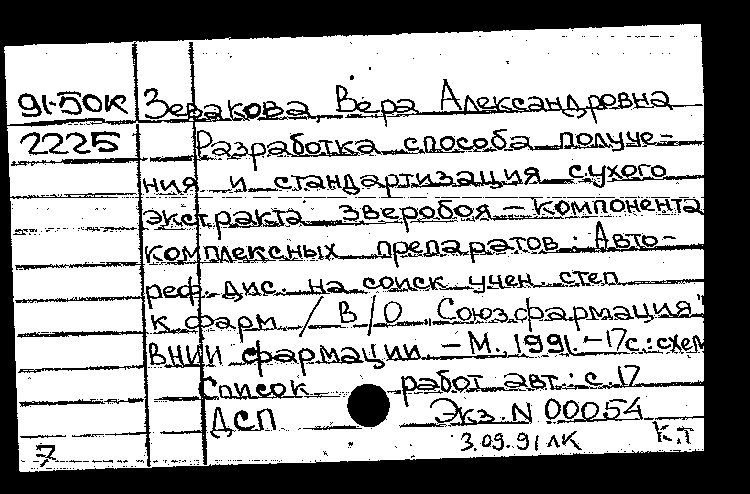 91-50К Зевакова, Вера Александровна
2225 Разработка способа получе-
ния и стандартизация сухого
экстракта зверобоя – компонента
комплексных препаратов : Авто-
реф. дис. на соиск учен. степ
к фарм / В/О „Союзфармация"
ВНИИ фармации. – М., 1991. – 17с.: схем
Список работ авт.: с. 17
ДСП Экз. N 00054
7 3.09.91 ЛК К.Т